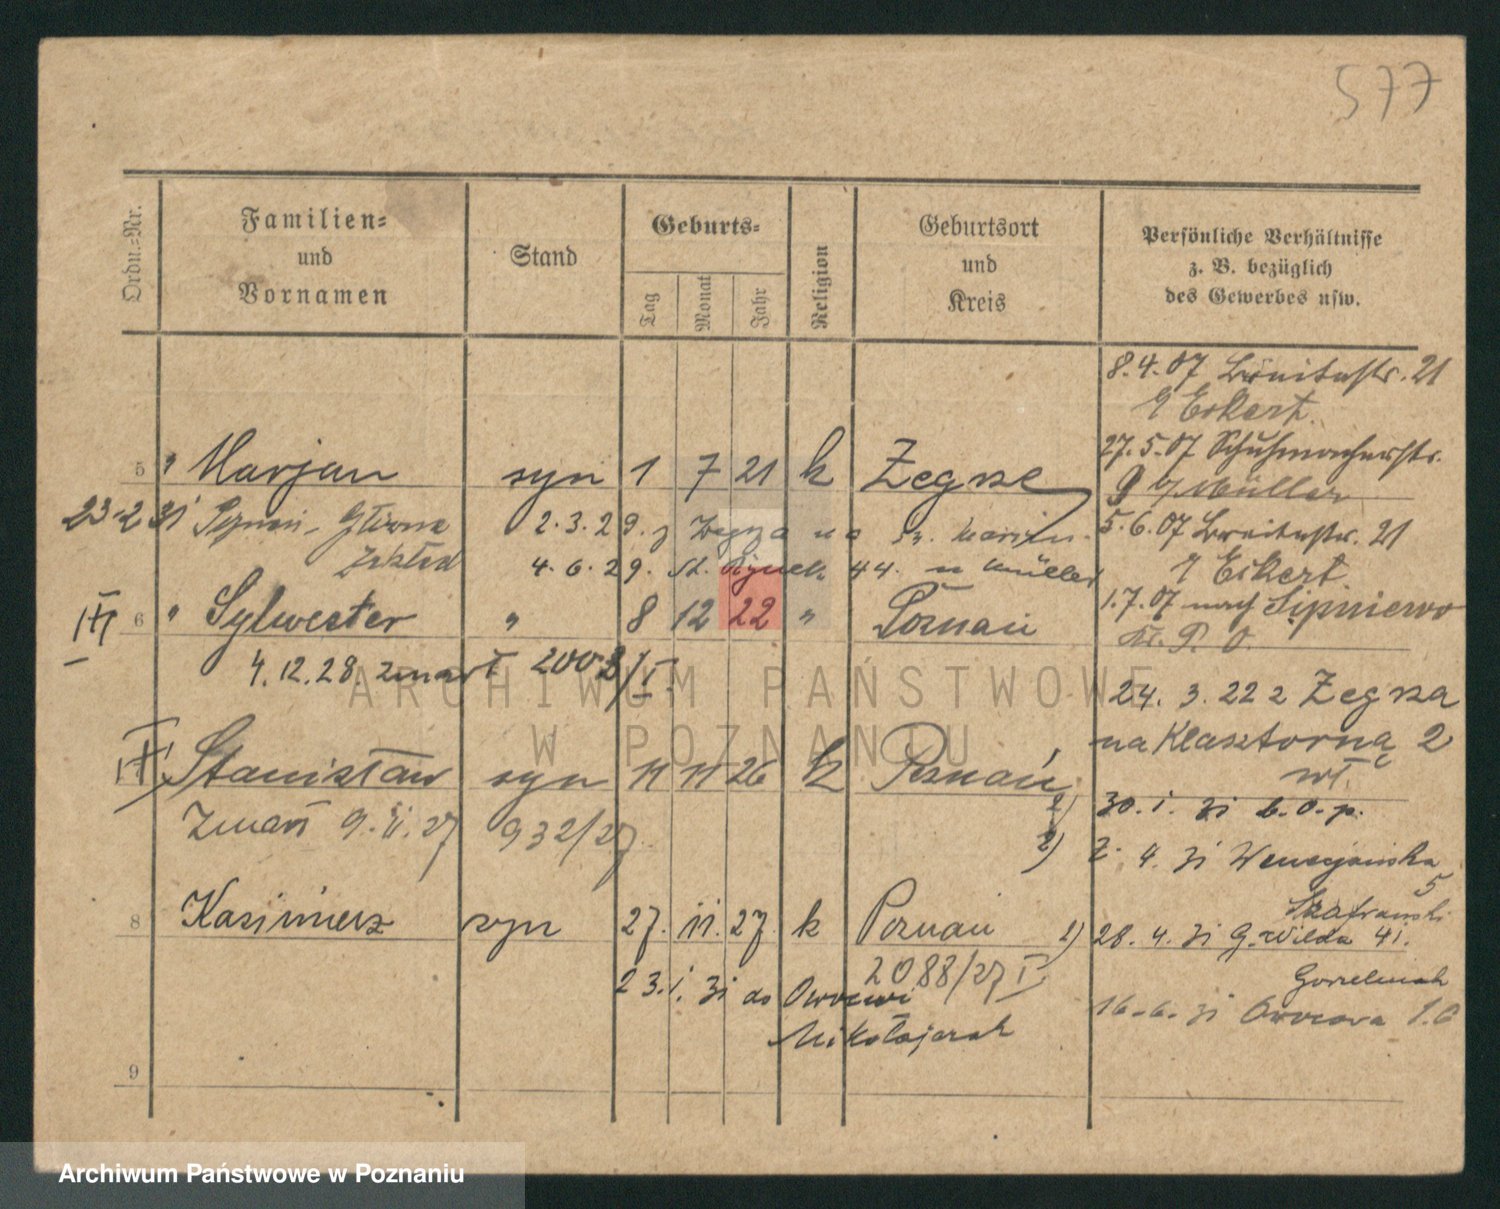 577
Ordn.=Nr.
Familien=
und
Vornamen
Stand
Geburts=
Tag
Monat
Jahr
Religion
Geburtsort
und
Kreis
Persönliche Verhältnisse
z. B. bezüglich
des Gewerbes usw.
8.4.07 Breitestr. 21
Eckert.
27.5.07 Schuhmacherstr.
5 " Marjan syn 1 7 21 k Zegrze
Müller
23.2 31 Główna 2.3.29. z Zegrza na
5.6.07 Breitestr. 21
Zakład 4.6.29. St. Rynek 44. u Müller
Eckert.
6 " Sylwester " 8 12 22 " Poznań
1.7.07 nach Sipniewo
Kr. P. O.
4.12.28. zmarł 2003/I.
24. 3. 22 z Zegrza
na Klasztorna 2
wł.
Stanisław syn 11 11 26 k Poznań
2) 30. i. 31 b.o.p.
Zmarł 9.II.27 932/27
2) 2. 4. 31 Wenecjańska
5
Szafrański
8 Kazimierz syn 27. 11. 27. k Poznań
2) 28. 4. 31 G. Wilda 41.
2088/27 I.
23.1. 31 do
Mikołajczak
16.6. 31 Owocowa
9
ARCHIWUM PAŃSTWOWE
W POZNANIU
Archiwum Państwowe w Poznaniu